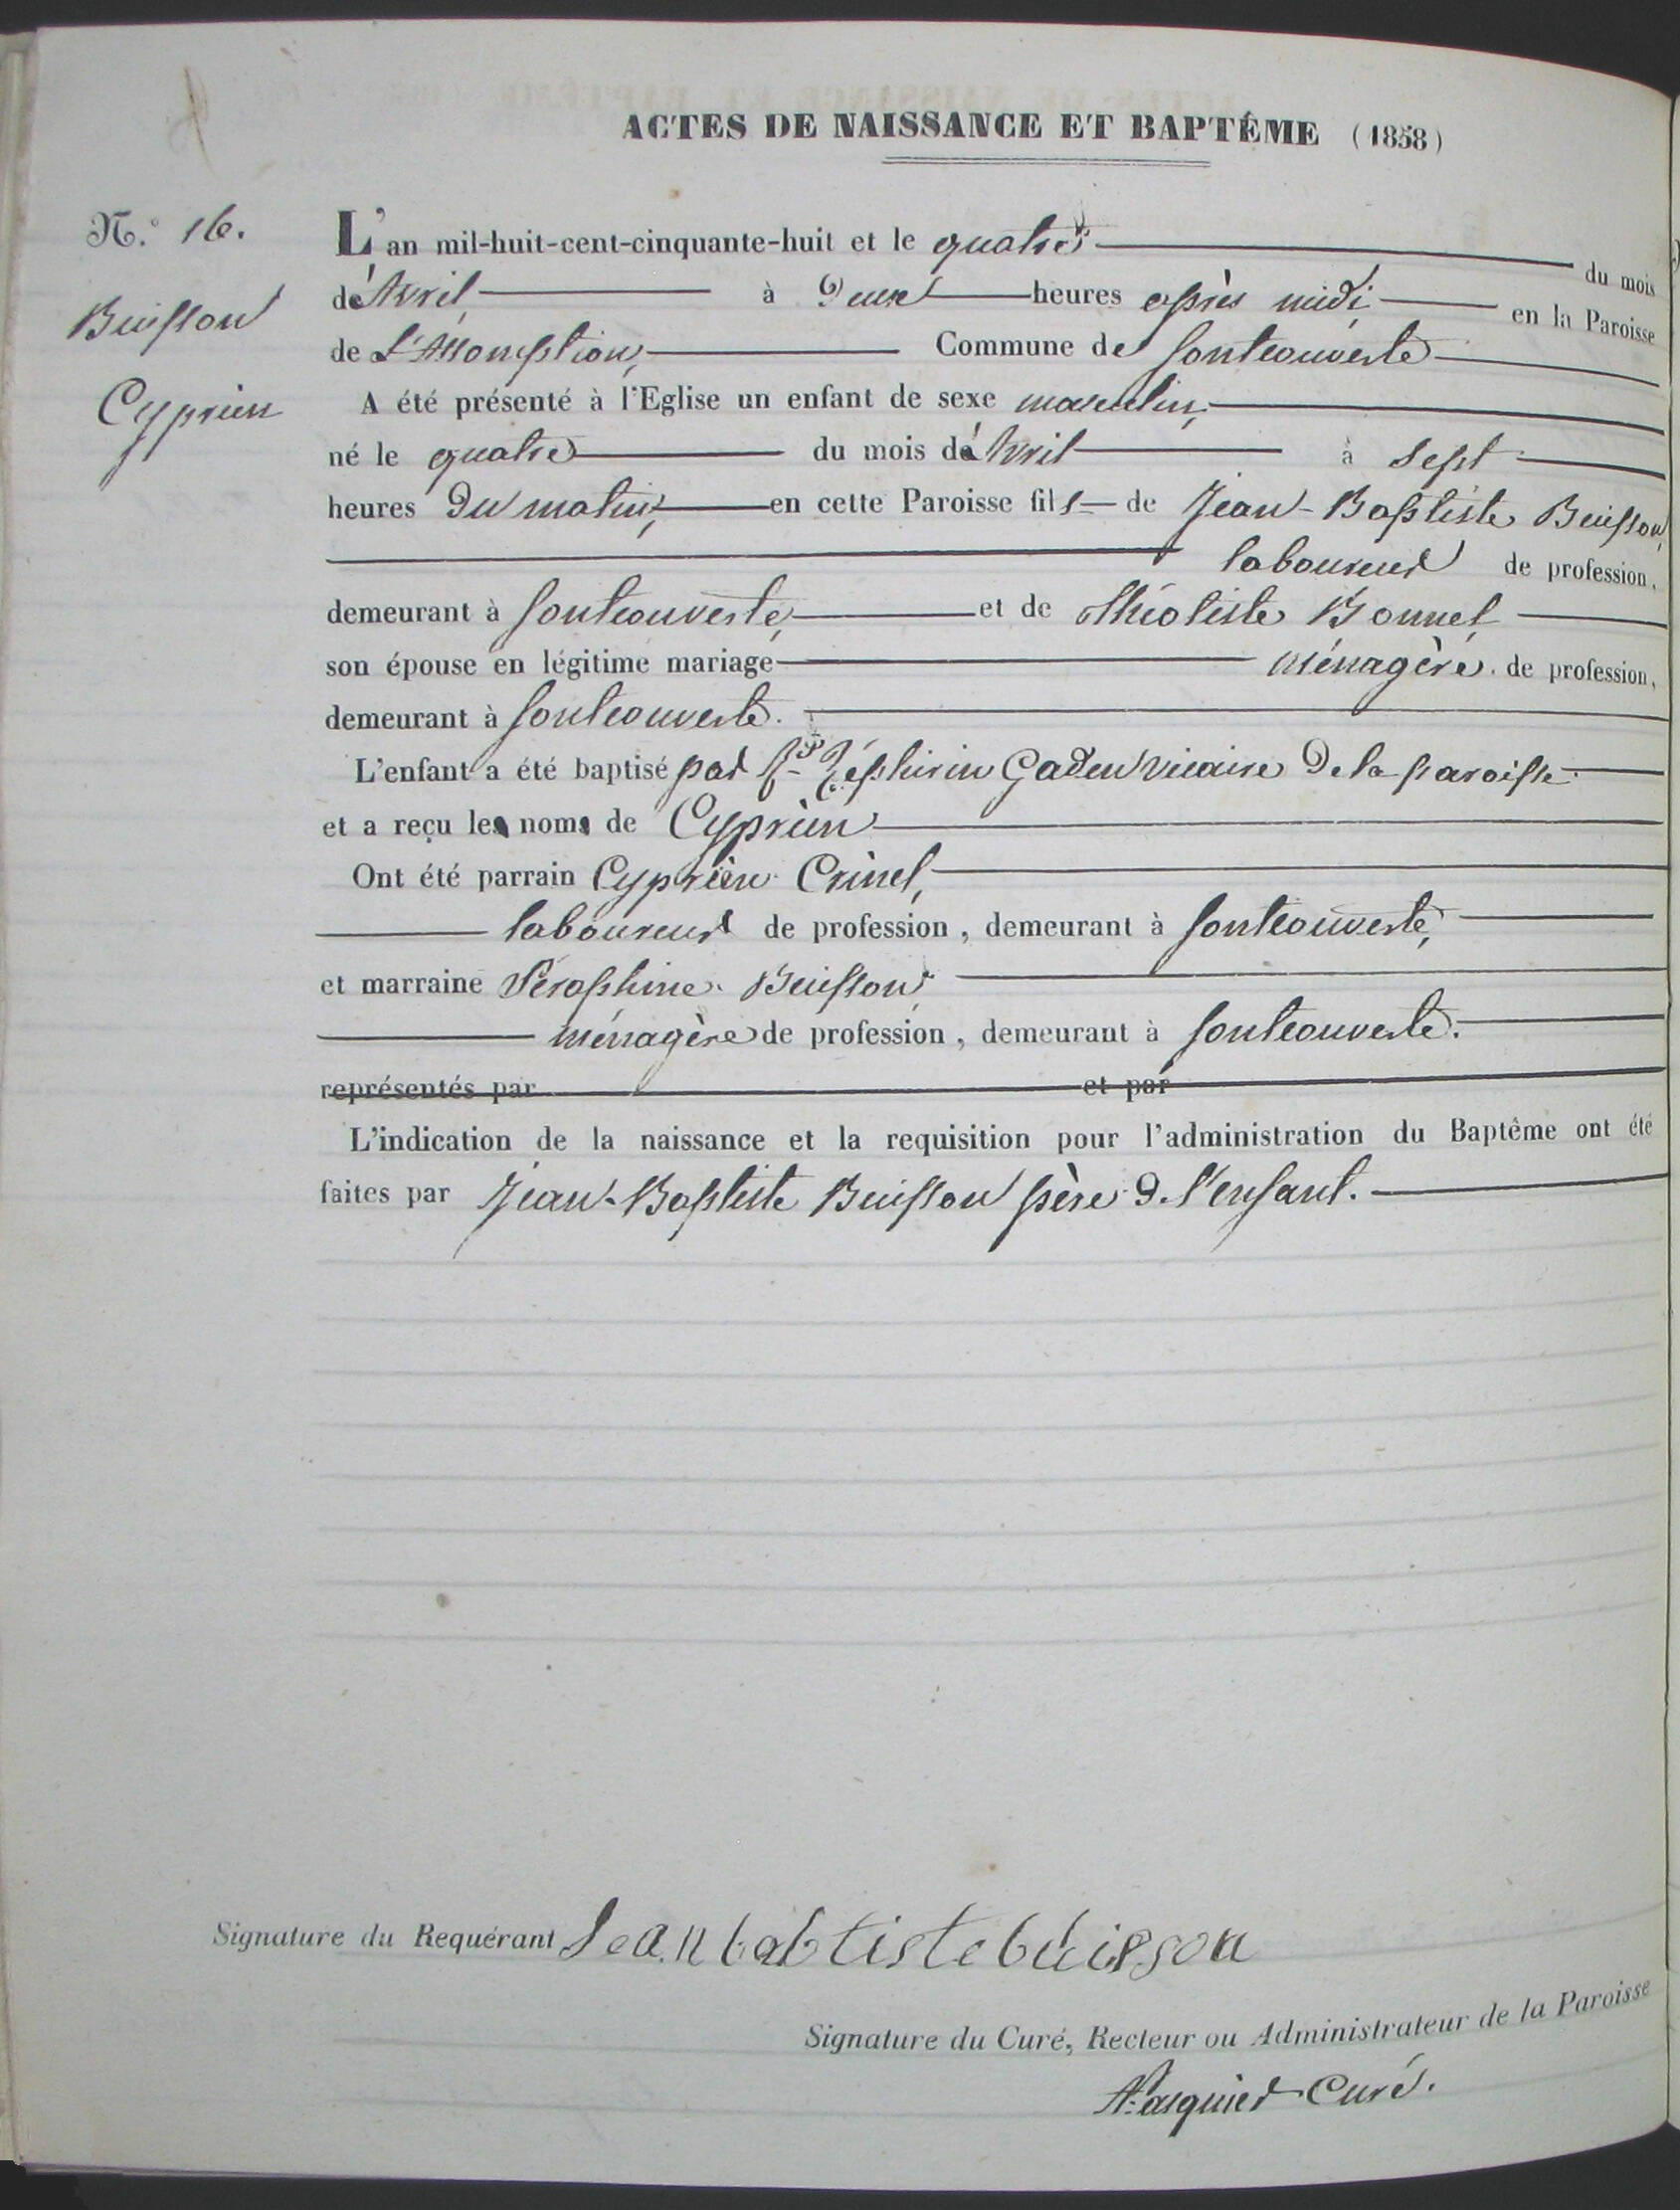 ACTES DE NAISSANCE ET BAPTÊME (1858)
N.° 16.
Buisson
Cyprien
L'an mil-huit-cent-cinquante-huit et le quatre du mois
d'Avril, à Deux heures après midi, en la Paroisse
de L'Assomption, Commune de fontcouverte
A été présenté à l'Eglise un enfant de sexe masculin,
né le quatre du mois d'Avril à Sept
heures Du matin, en cette Paroisse fils de Jean-Baptiste Buisson,
laboureur de profession,
demeurant à fontcouverte, et de Théotiste Bonnet,
son épouse en légitime mariage ménagère de profession,
demeurant à fontcouverte.
L'enfant a été baptisé par Zéphirin Gaden vicaire De la paroisse
et a reçu le nom de Cyprien
Ont été parrain Cyprien Crinel,
laboureur de profession, demeurant à fontcouverte,
et marraine Séraphine Buisson,
ménagère de profession, demeurant à fontcouverte.
représentés par et par
L'indication de la naissance et la requisition pour l'administration du Baptême ont été
faites par Jean-Baptiste Buisson père D. l'enfant.
Signature du Requérant Jean babtiste buisson
Signature du Curé, Recteur ou Administrateur de la Paroisse
Pasquier Curé.